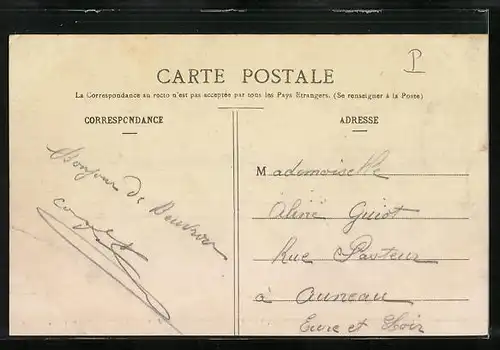 P
CARTE POSTALE
La Correspondance au recto n'est pas acceptée par tous les Pays Etrangers. (Se renseigner à la Poste)
CORRESPONDANCE
ADRESSE
Bonjour de
Mademoiselle
Aline Guiot
Rue Pasteur
à Auneau
Eure et Loir